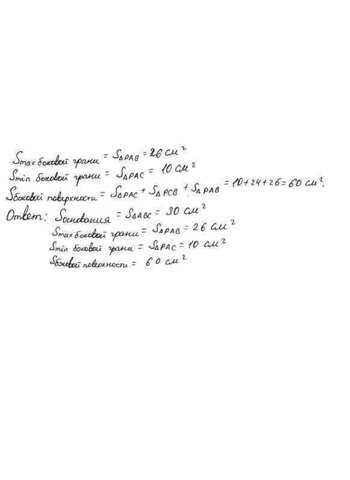 Smax боковой грани = S△PAB = 26 см²
Smin боковой грани = S△PAC = 10 см²
Sбоковой поверхности = S△PAC + S△PCB + S△PAB = 10+24+26=60 см²;
Ответ: Sоснования = S△ABC = 30 см²
Smax боковой грани = S△PAB = 26 см²
Smin боковой грани = S△PAC = 10 см²
Sбоковой поверхности = 60 см²